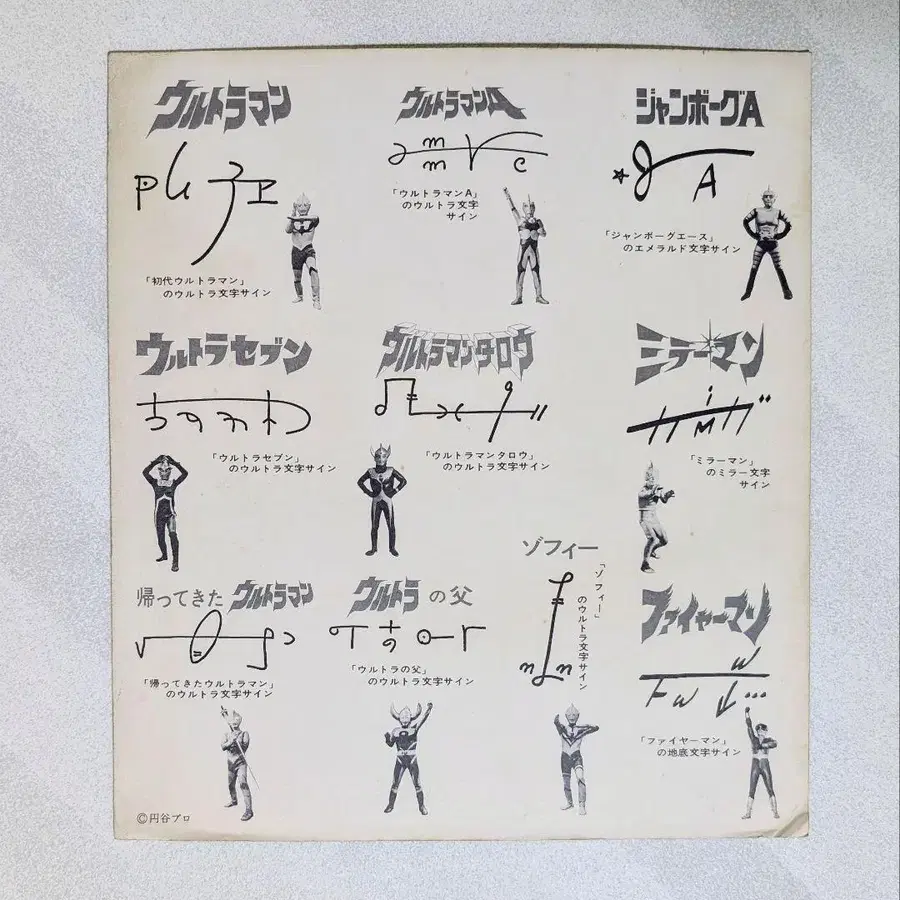 ウルトラマン
「初代ウルトラマン」
のウルトラ文字サイン
ウルトラマンA
「ウルトラマンA」
のウルトラ文字
サイン
ジャンボーグA
A
「ジャンボーグエース」
のエメラルド文字サイン
ウルトラセブン
「ウルトラセブン」
のウルトラ文字サイン
ウルトラマンタロウ
「ウルトラマンタロウ」
のウルトラ文字サイン
ミラーマン
「ミラーマン」
のミラー文字
サイン
帰ってきたウルトラマン
「帰ってきたウルトラマン」
のウルトラ文字サイン
ウルトラの父
「ウルトラの父」
のウルトラ文字サイン
ゾフィー
「ゾフィー」
のウルトラ文字サイン
ファイヤーマン
「ファイヤーマン」
の地底文字サイン
©円谷プロ